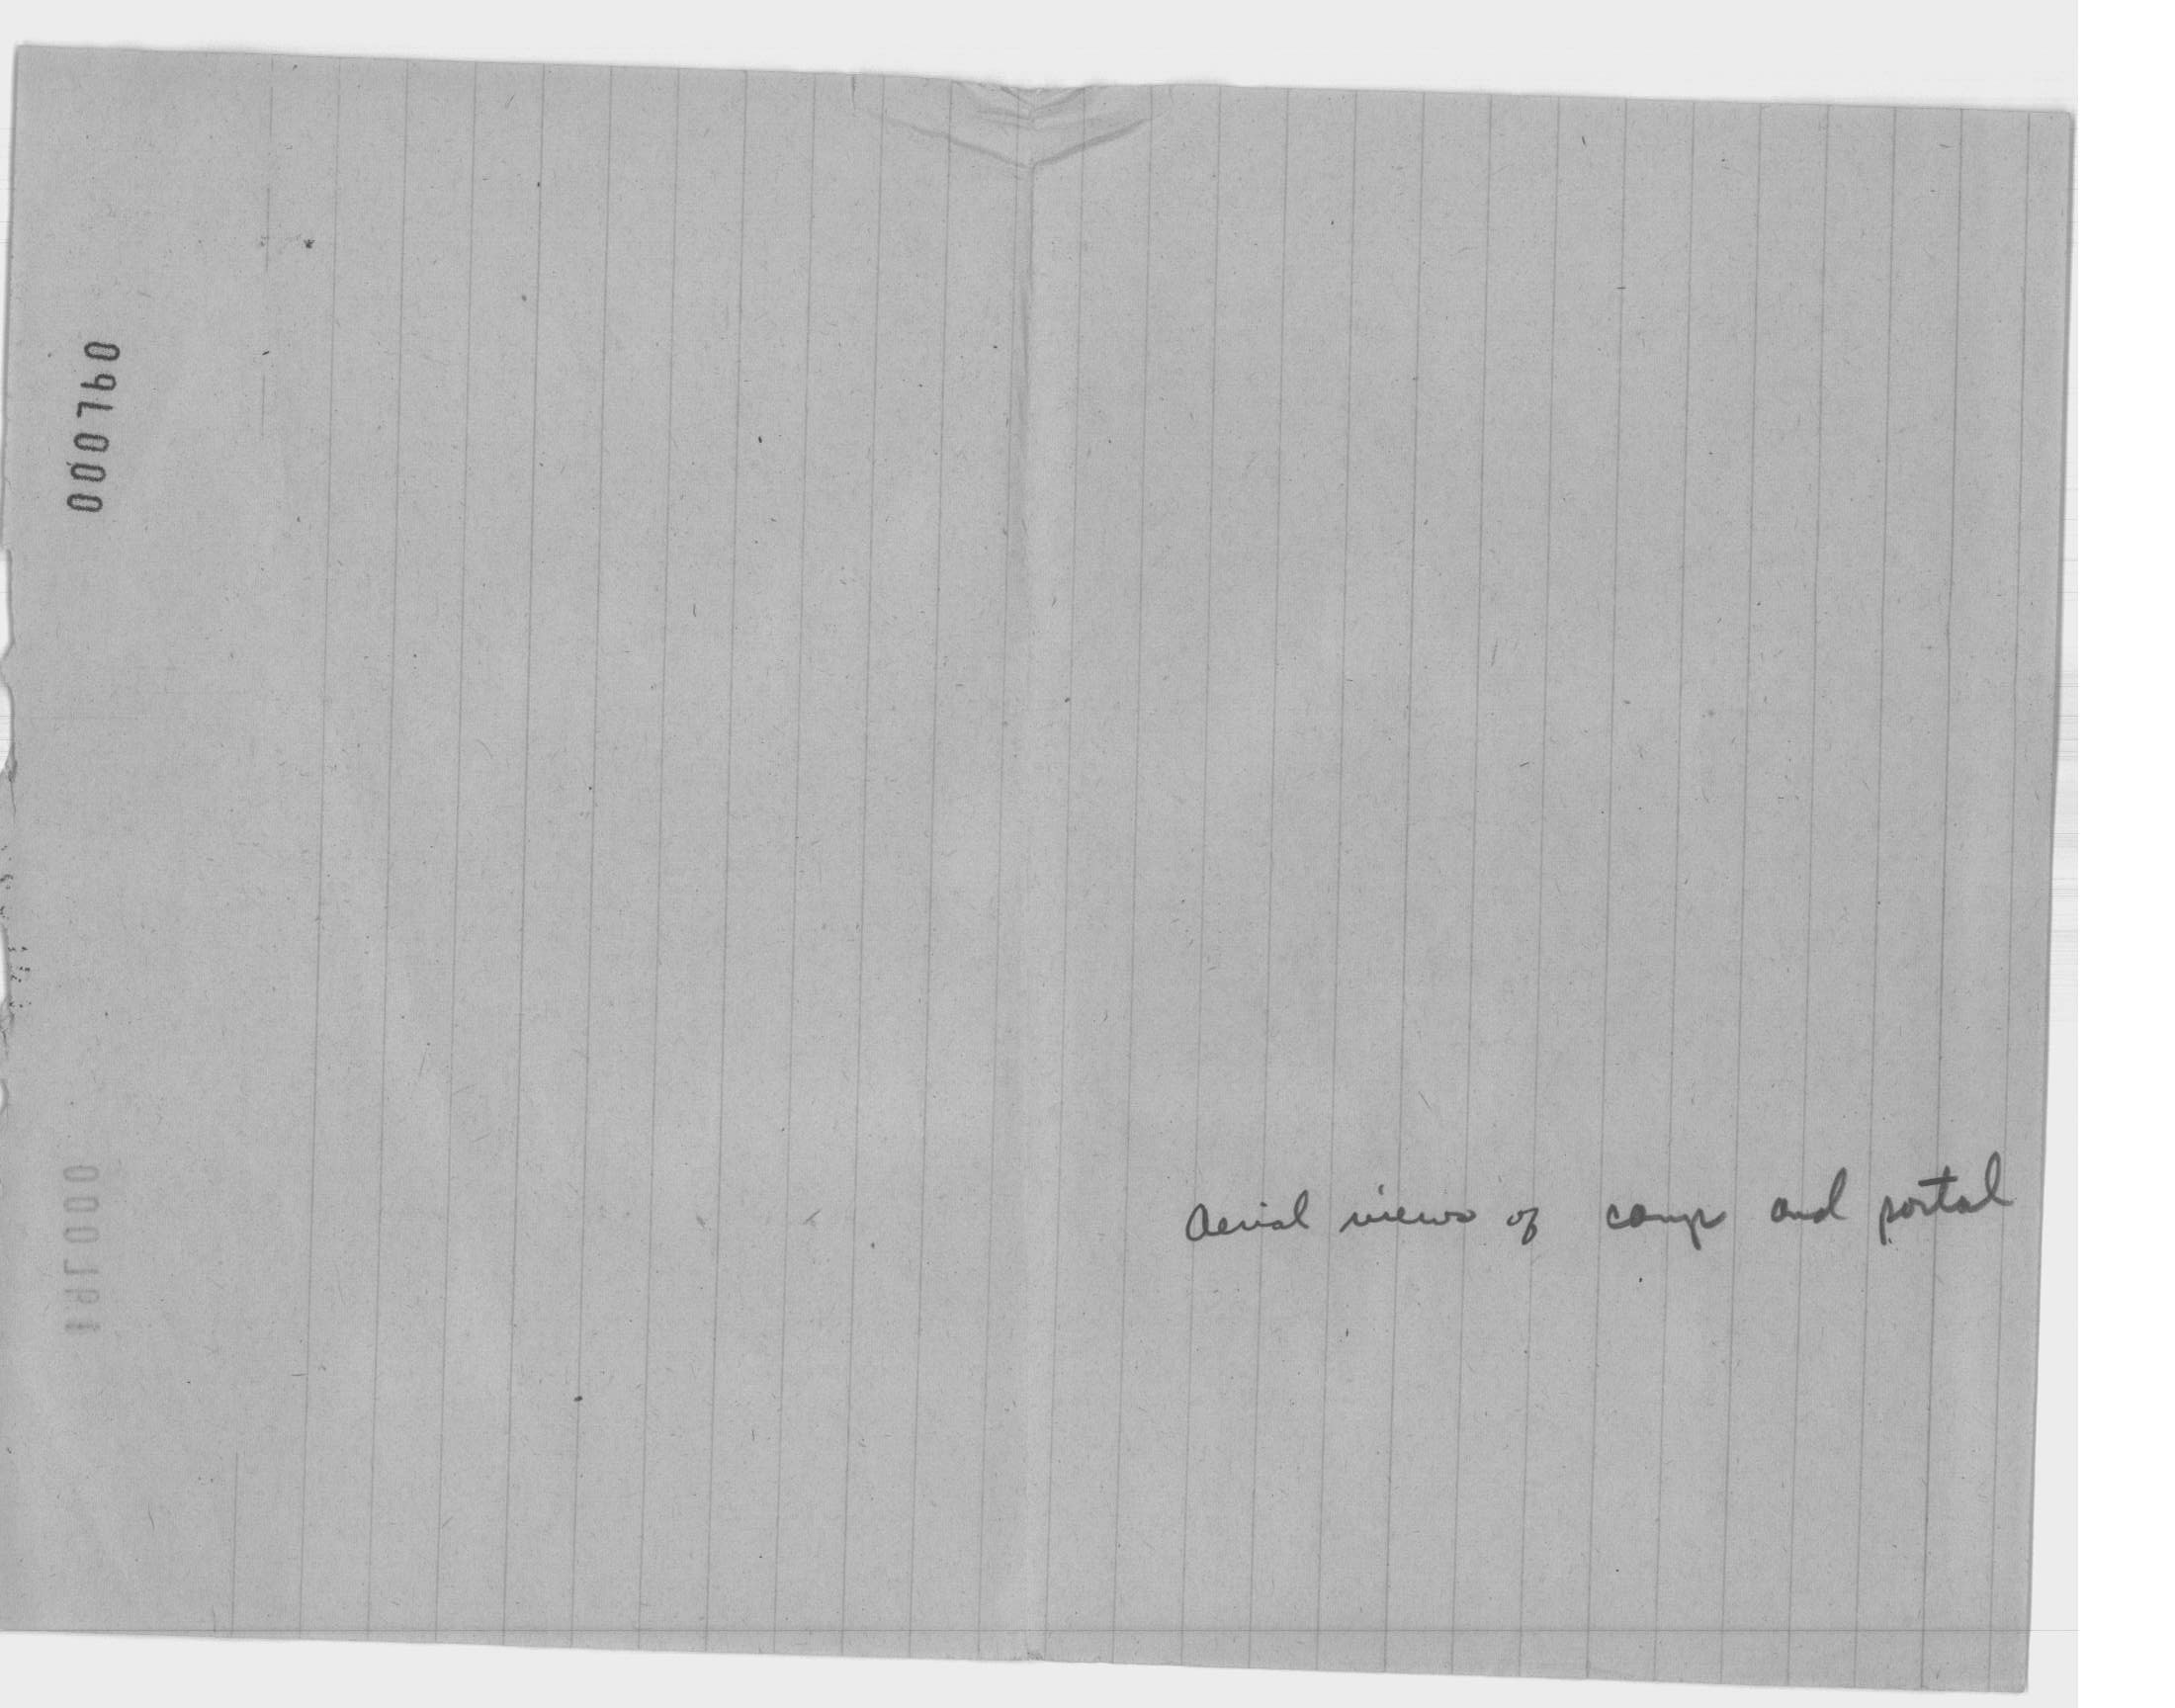 000760
Aerial views of camp and portal